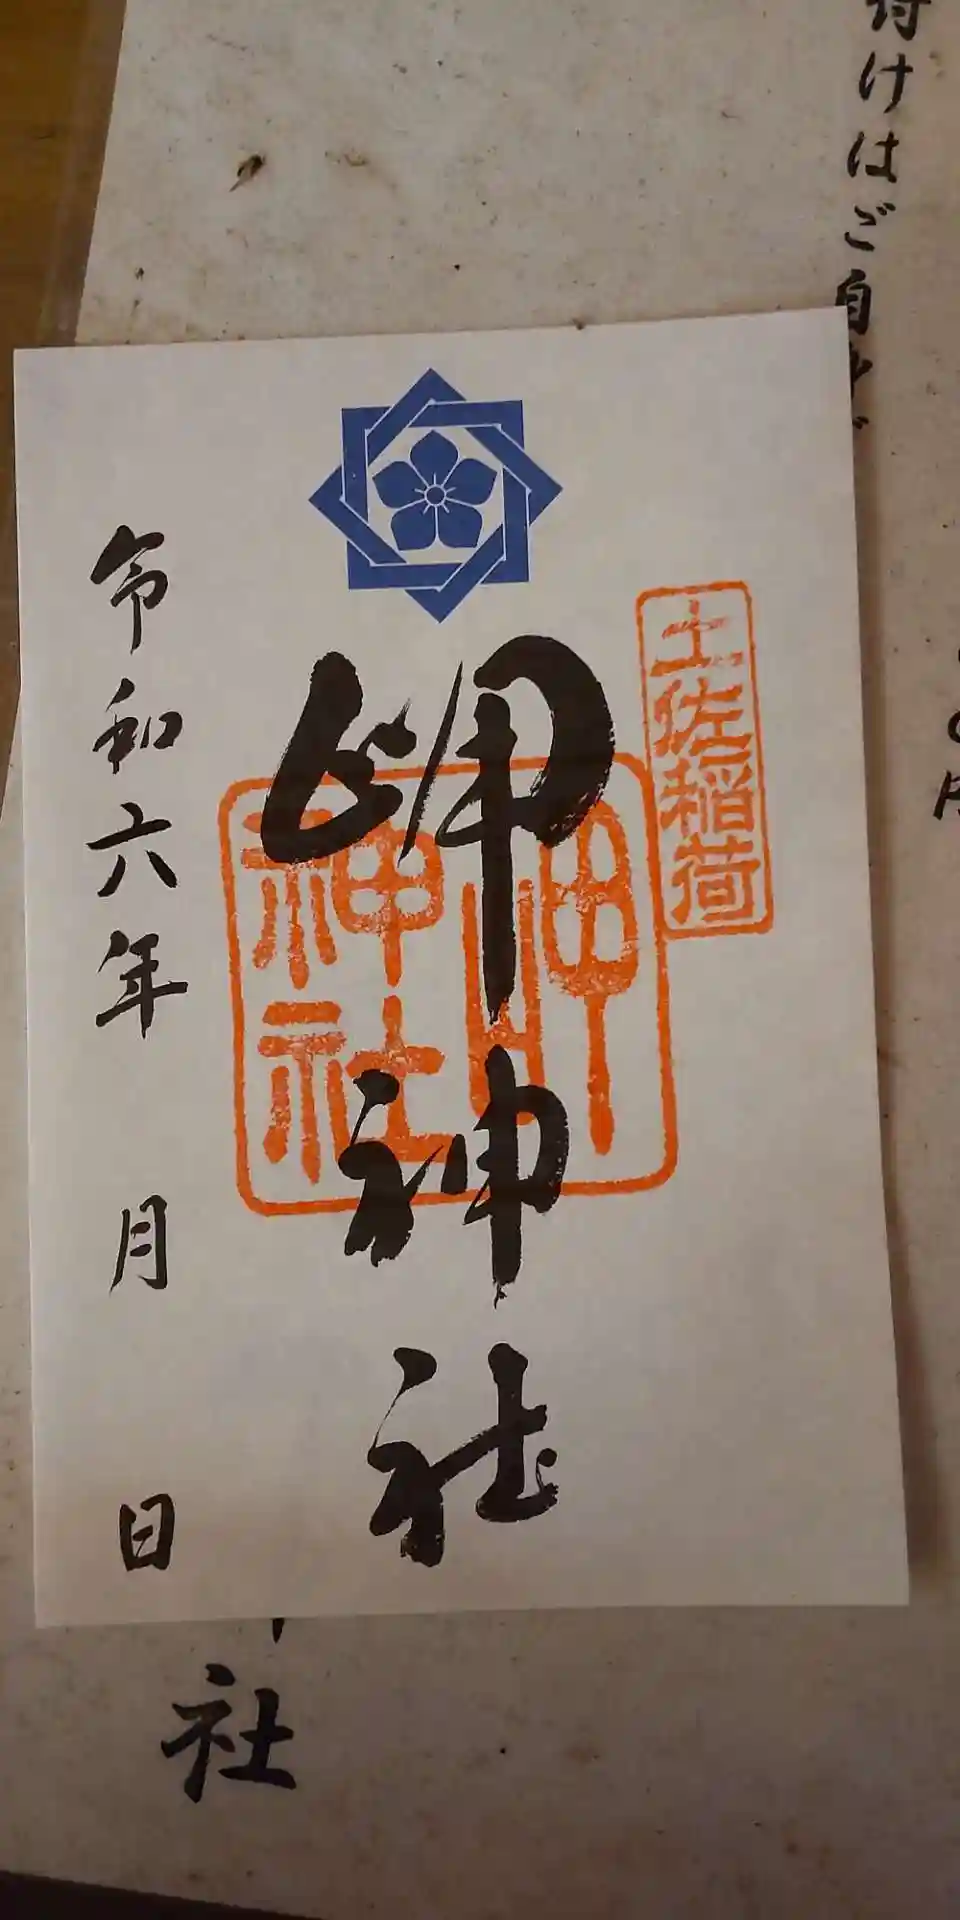 付けはご自
土佐稲荷
岬神社
岬
神社
令和六年 月 日
社